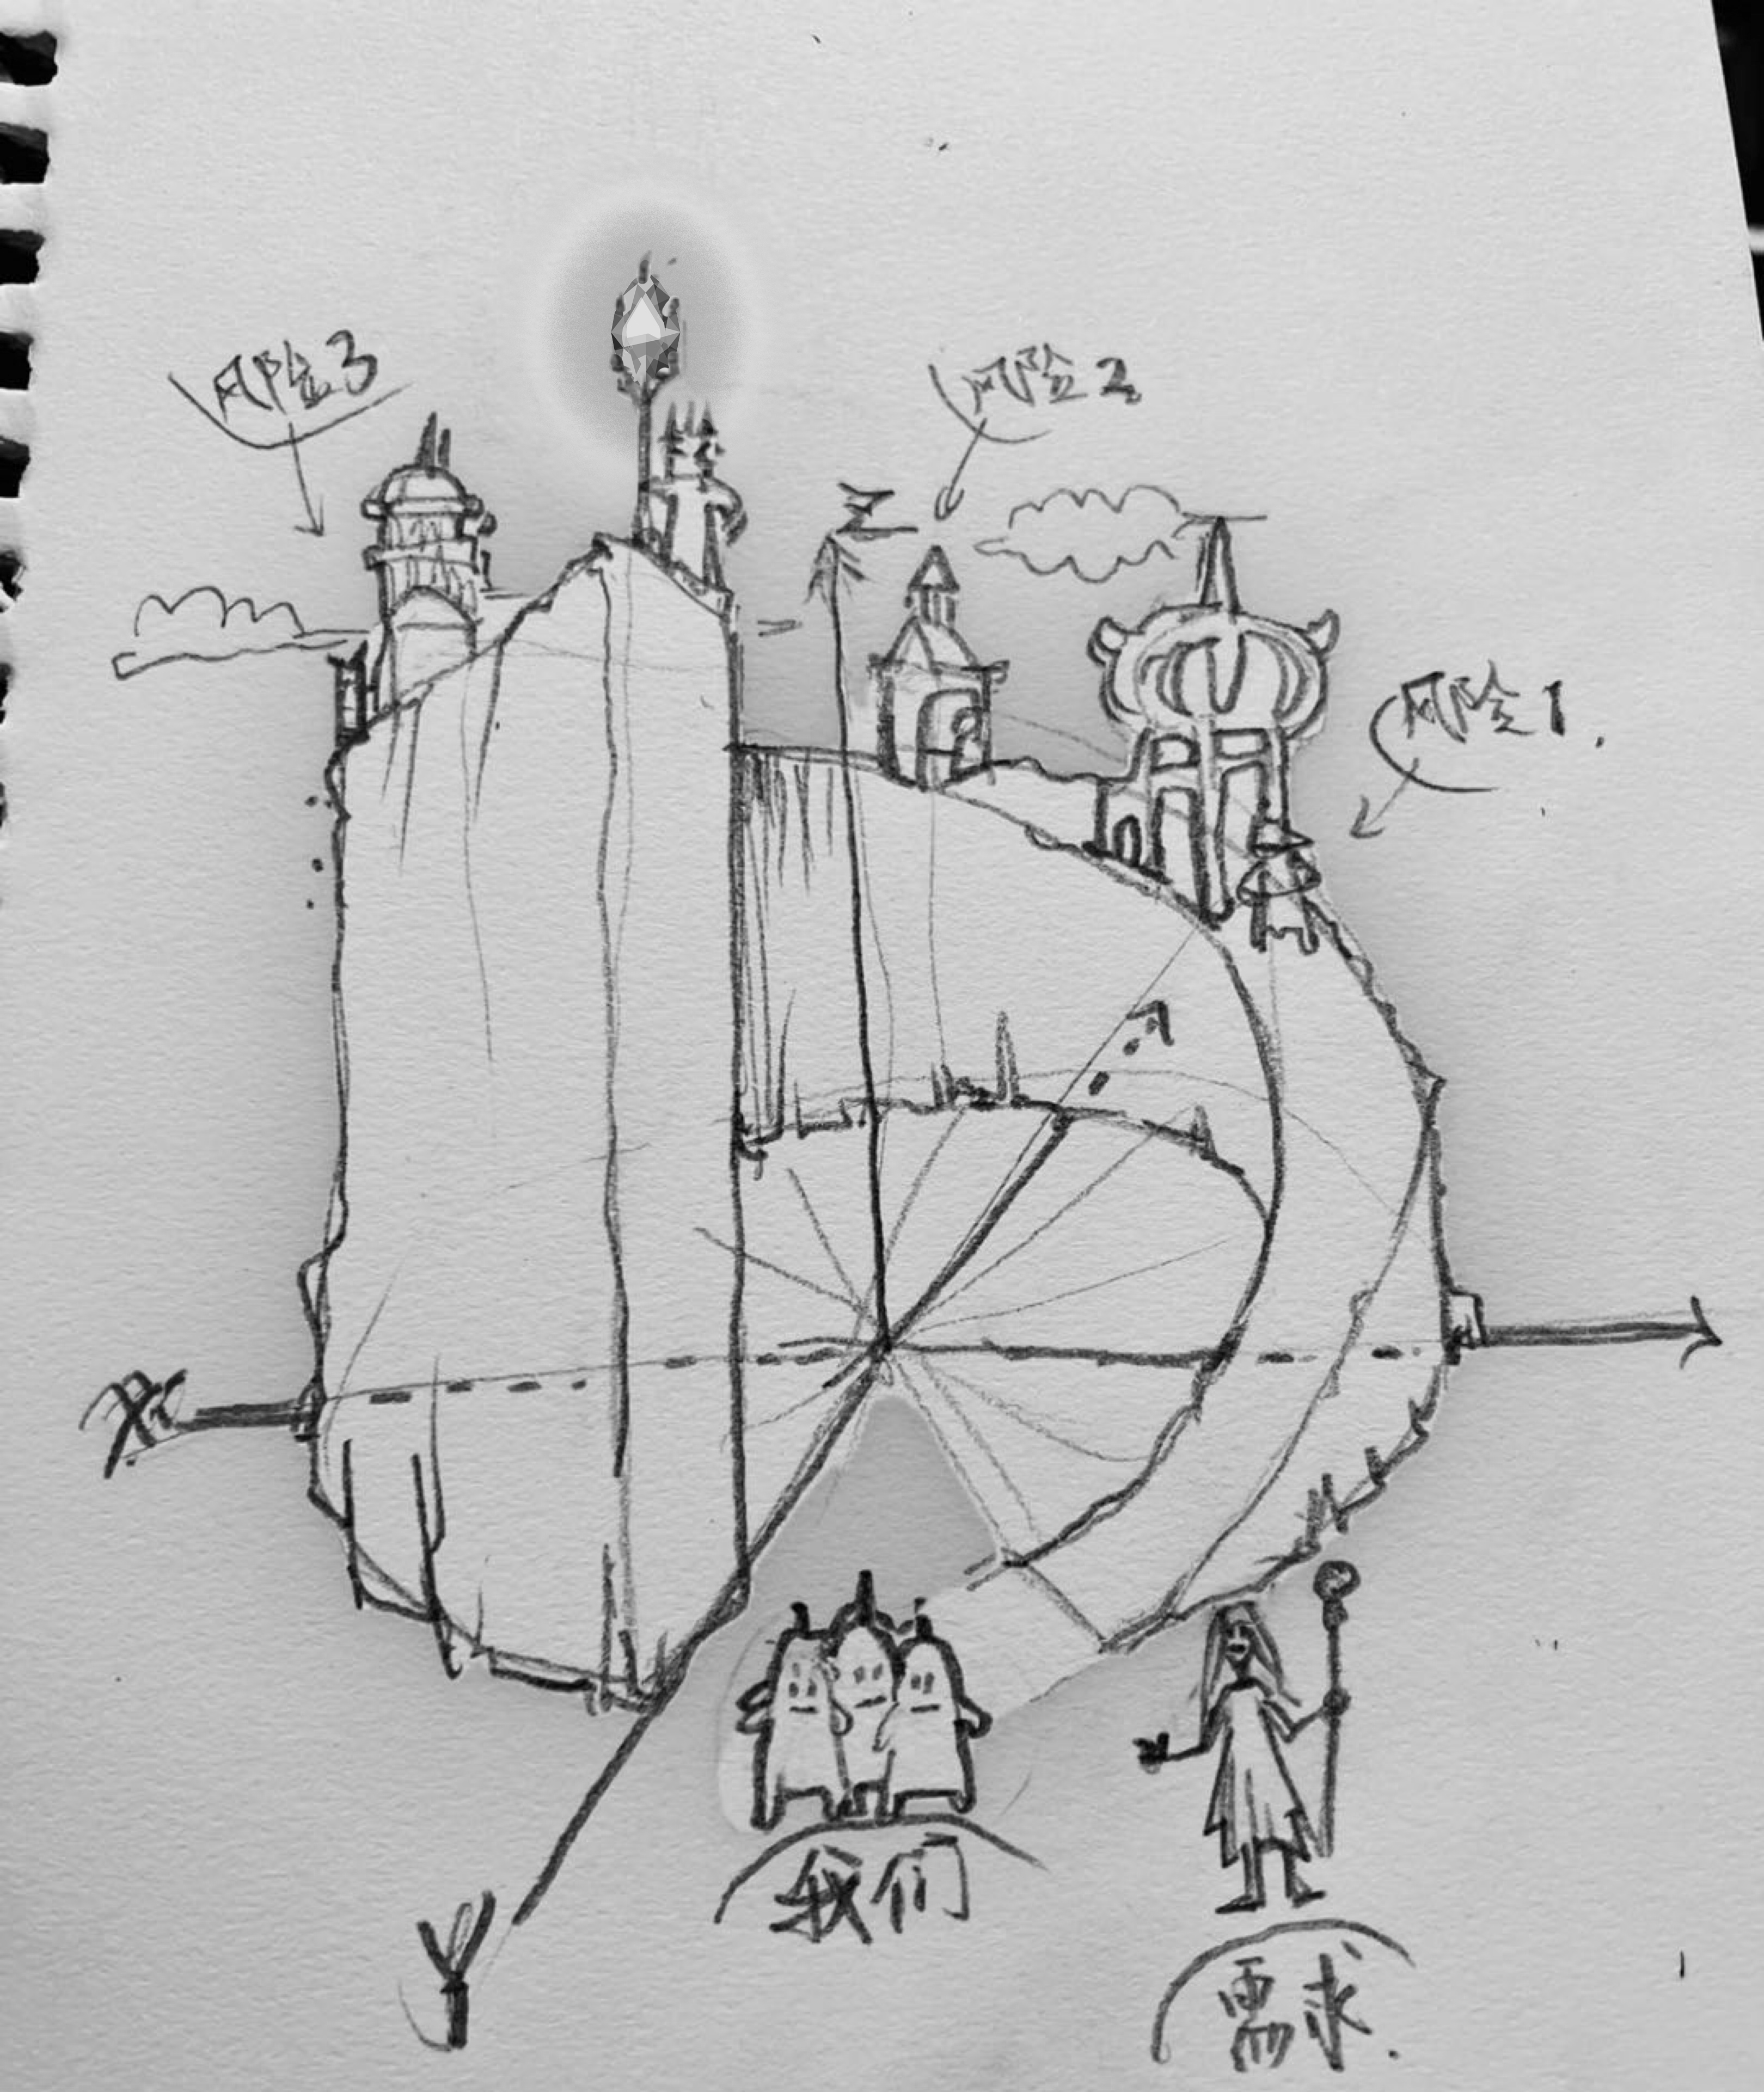 风险3
风险2
Z
风险1.
X
Y
我们
需求.